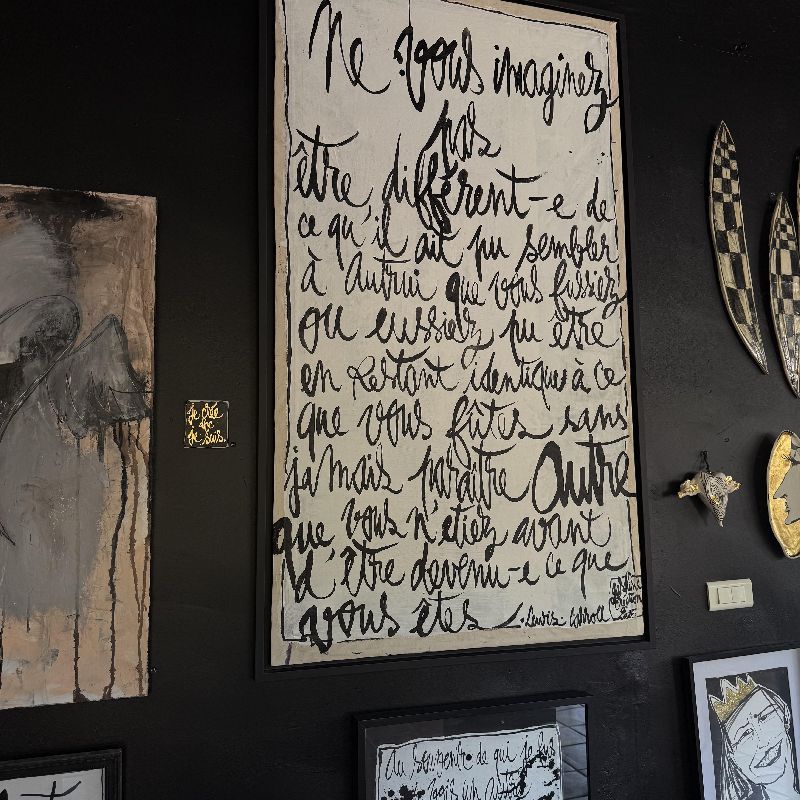 Ne vous imaginez
pas
être différent-e de
ce qu'il ait pu sembler
à autrui que vous fussiez
ou eussiez pu être
en restant identique à ce
que vous fûtes sans
jamais paraître Autre
que vous n'étiez avant
d'être devenu-e ce que
vous êtes . Lewis Carroll
je crée
donc
je suis.
Au souvenir de qui je fus